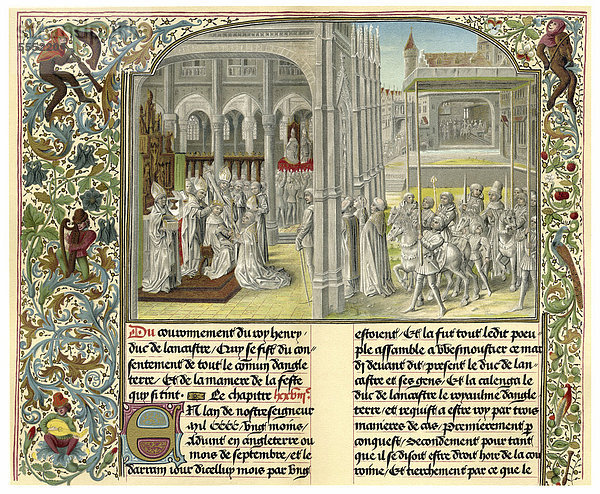 Du couronnement du roy henry
duc de lancastre / Quy se fist du con
sentement de tout le comun dangle
terre / Et de la maniere de la feste
quy si tint. Le chapitre
En lan de nostreseigneur
mil cccc vng moins /
Aduint en angleterre ou
mois de septembre / et le
darrain iour dicelluy mois par vng
estoient / Et la fut tout ledit poeu
ple assamble a wesmoustier ce mar
di deuant dit present le duc de lan
castre et ses gens / Et calenga le
duc de lancastre le royaulme dangle
terre / et requist a estre roy par trois
manieres de cas / Premierement p
conquest / Secondement pour tant
que il se disoit estre droit hoir de la cou
ronne / Et tierchement par ce que le